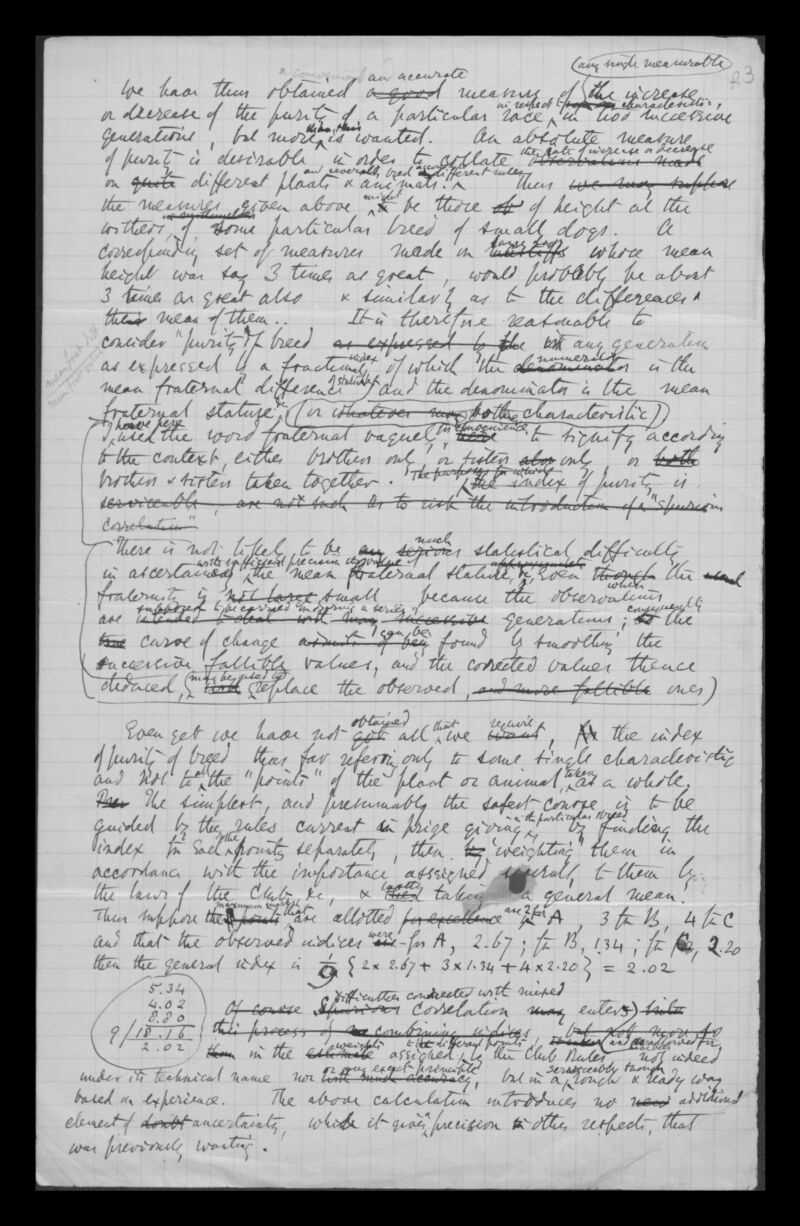 (any single measurable)
an accurate
83
We have thus obtained a good measure of the increase
in respect characteristic,
or decrease of the purity of a particular race, in two successive
than this
generations, but more is wanted. An absolute measure
the rate of increase or decrease
of purity is desirable, in order to collate observations made
and severally bred different rules
on quite different plants & animals. Thus we may suppose
might
the measures given above be those of of height at the
withers, of some particular breed of small dogs. A
corresponding set of measures made on mastiffs whose mean
height was say 3 times as great, would probably be about
3 times as great also & similarly as to the differences &
their mean of them.. It is therefore reasonable to
consider "purity" of breed as expressed by the in any generation
index numerator
as expressed by a fraction, of which the denominator is the
of stature
mean fraternal difference and the denominator is the mean
fraternal stature, (or whatever may be the characteristic)
I have here for convenience
used the word fraternal vaguely, here to signify according
to the context, either brothers only, or sisters also only, or both
The purposes for which
brothers & sisters taken together. the index of purity is
serviceable, are not such as to risk the introduction of a "spurious
correlation"
much
There is not likely to be any serious statistical difficulty
with sufficient precision the value of
in ascertaining the mean fraternal stature, even though the
which
fraternity is not large small because the observations
supposed to be carried on during a series of consequently
are intended to deal with many successive generations; so the
can be
true curve of change admits of being found by smoothing the
succession fallible values, and the corrected values thence
may be used to
deduced, replace the observed, and more fallible ones)
obtained that require
Even yet we have not got all we want, the index
of purity of breed thus far referring only to some single characteristic
all taken
and not to the "points" of the plant or animal, as a whole.
The simplest, and presumably the safest course is to be
in the particular breed
guided by the rules current in prize giving, by finding the
of the
index for each points separately, then "weighting" them in
accordance with the importance assigned severally to them by
lastly
the laws of the Club &c, & then taking a general mean.
maximum marks that are 2 for
Thus suppose the points are allotted for excellence A, 3 for B, 4 for C
were
and that the observed indices for A, 2.67; for B, 1.34; for C, 2.20
then the general index is 1/9 {2 x 2.67 + 3 x 1.34 + 4 x 2.20} = 2.02
5.34
4.02
8.80
9/18.16
2.02
difficulties connected with mixed
Of course Spurious correlation may enter(s) into
this process of combining indices, but not more so
weights to the different points and allowed for,
than in the estimate assigned by the Club Rules not indeed
or any exact principle serviceable though
under its technical name nor with much accuracy, but in a rough & ready way
based on experience. The above calculation introduces no new additional
element of doubt uncertainty, while it gives precision in other respects, that
was previously wanting.